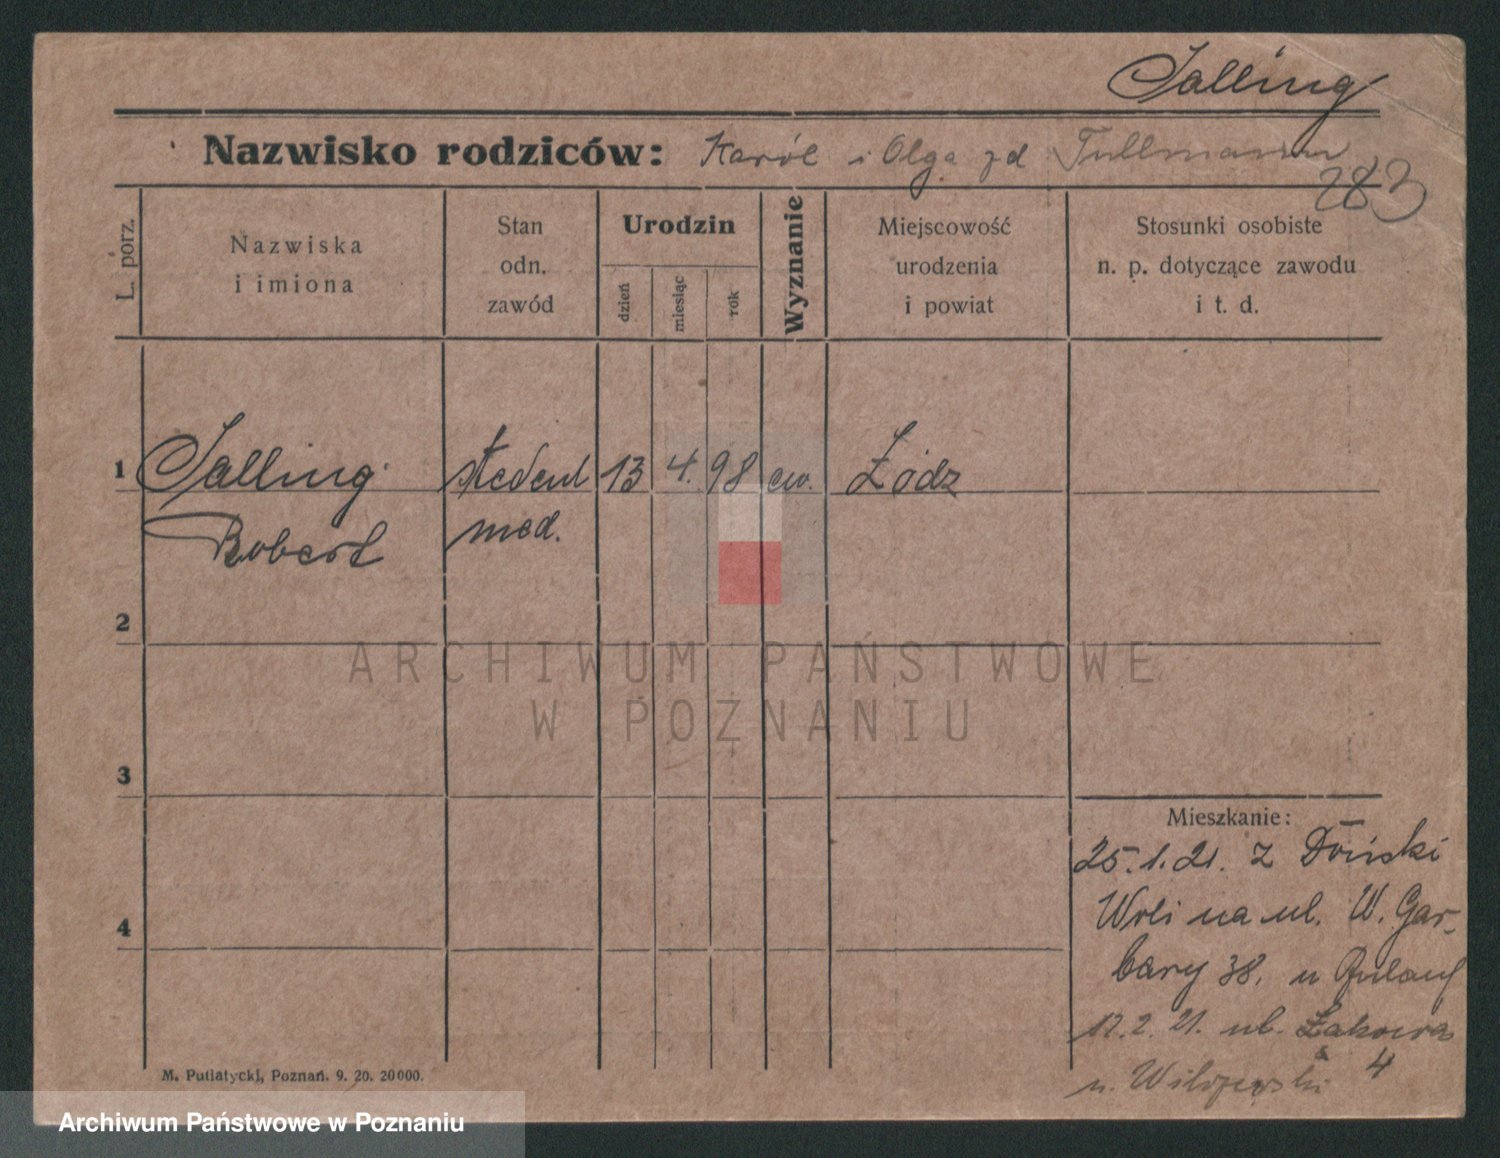 Salling
Nazwisko rodziców: Karól i Olga zd Tullmann
283
L. porz.
Nazwiska
i imiona
Stan
odn.
zawód
Urodzin
dzień
miesiąc
rok
Wyznanie
Miejscowość
urodzenia
i powiat
Stosunki osobiste
n. p. dotyczące zawodu
i t. d.
1 Salling student 13 4. 98 ew. Łódz
Robert med.
2
ARCHIWUM PAŃSTWOWE
W POZNANIU
3
Mieszkanie:
25.1.21. z
na ul. W. Gar-
4
bary 38. u
17.2.21. ul. Łąkowa
4
u.
M. Putiatycki, Poznań. 9. 20. 20000.
Archiwum Państwowe w Poznaniu